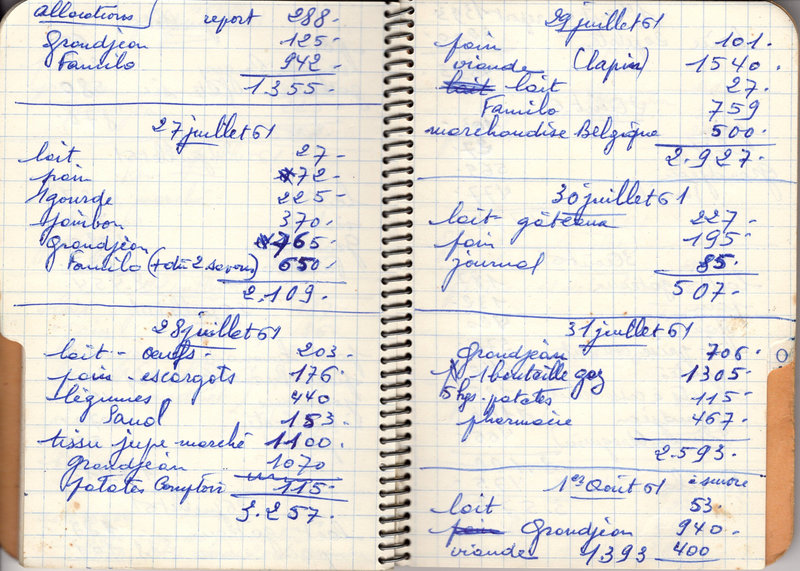 allocations report 288.
Grandjean 125-
Familo 942-
1355-
27 juillet 61
lait 27-
pain 72-
1 gourde 225-
jambon 370-
Grandjean 765-
Familo (+ dû = 2 savons) 650.
2.109.
28 juillet 61
lait - oeufs - 203.
pain - escargots 176-
légumes 440
Sand 153
tissu jupe marché 1100.
grandjean 1070
patates Comptoir 115-
3.257-
29 juillet 61
pain 101.
viande (lapin) 1540.
lait lait 27.
Familo 759
marchandise Belgique 500.
2.927-
30 juillet 61
lait - gâteaux 227-
pain 195-
journal 85.
507-
31 juillet 61
Grandjean 706.
1 bouteille gaz 1305.
5 kgs. patates 115-
pharmacie 467-
2.593.
1er Août 61 à suivre
lait 53.
pain Grandjean 940-
viande 1393 400